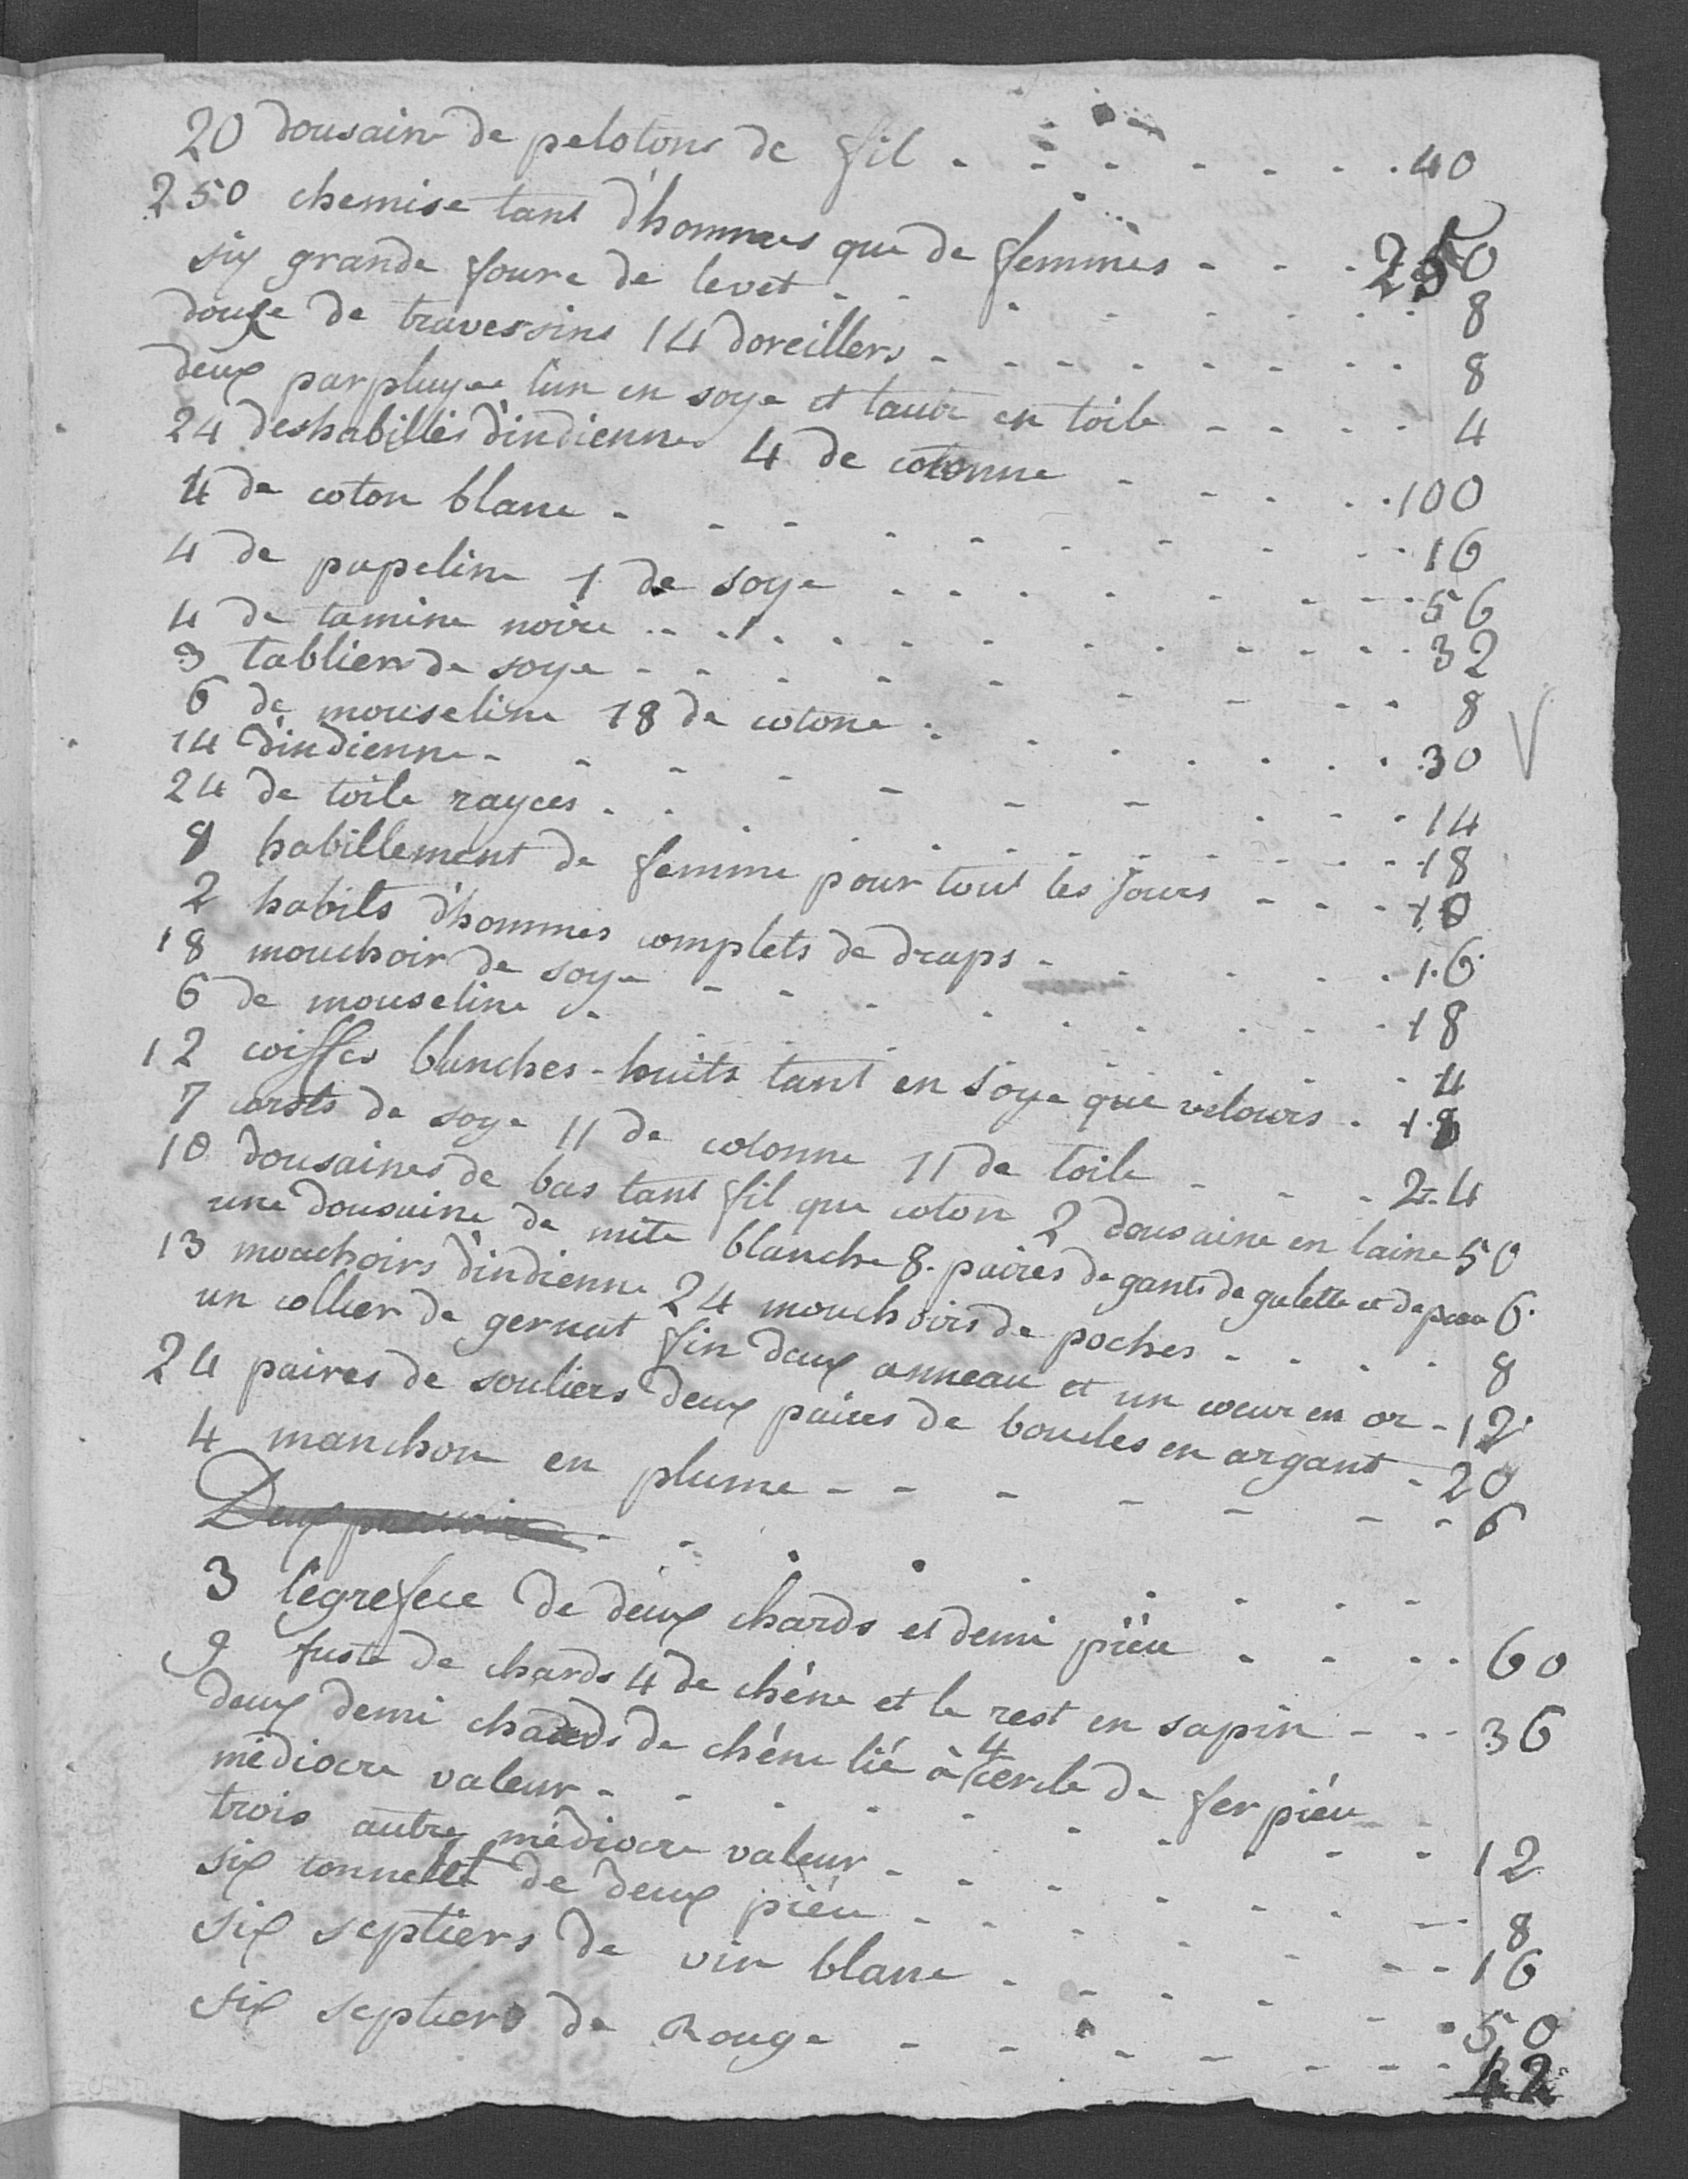 20 dousain de pelotons de fil - - - - - - - 40
250 chemise tant d'hommes que de femmes - - - 250
six grande foure de levet - - - - - - - 8
douse de traversins 14 doreillers - - - - - - - 8
deux parpluyes l'un en soye et lautre en toile - - - - 4
24 deshabillés d'indiennes 4 de cotonne - - - - - 100
4 de coton blanc - - - - - - - - - 16
4 de papeline 1 de soye - - - - - - - 56
4 de tamine noire - - - - - - - - - - 32
3 tabliers de soye - - - - - - - - 8
6 de mouseline 18 de cotone - - - - - - - 30
14 d'indienne - - - - - - - - - - 14
24 de toile rayees - - - - - - - - - - 18
8 habillement de femme pour tout les jours - - - 10
2 habits d'hommes complets de draps - - - - - 16
18 mouchoir de soye - - - - - - - - 18
6 de mouseline - - - - - - - 4
12 coiffes blanches - huits tant en soye que velours - 18
7 corsets de soye 11 de cotonne 11 de toile - - - 24
10 dousaines de bas tant fil que coton 2 dousaine en laine 50
une dousaine de mite blanche 8 paires de gants de galette et de peau 6
13 mouchoirs d'indienne 24 mouchoirs de poches - - - - 8
un collier de gernat fin deux anneau et un coeur en or - 12
24 paires de souliers deux paires de boucles en argant - 20
4 manchon en plume - - - - - - - 6
Deux
3 légrefece de deux chards et demi piéu - - - - 60
9 fuste de chards 4 de chéne et le rest en sapin - - - 36
deux demi chards de chéne lié à 4 cercle de fer piéu - -
médiocre valeur - - - - - - - - - - 12
trois autre médiocre valeur - - - - - - - - 8
six tonnelet de deux piéu - - - - - - - - 16
six septiers de vin blanc - - - - - - 50
six septiers de Rouge - - - - - - - 42